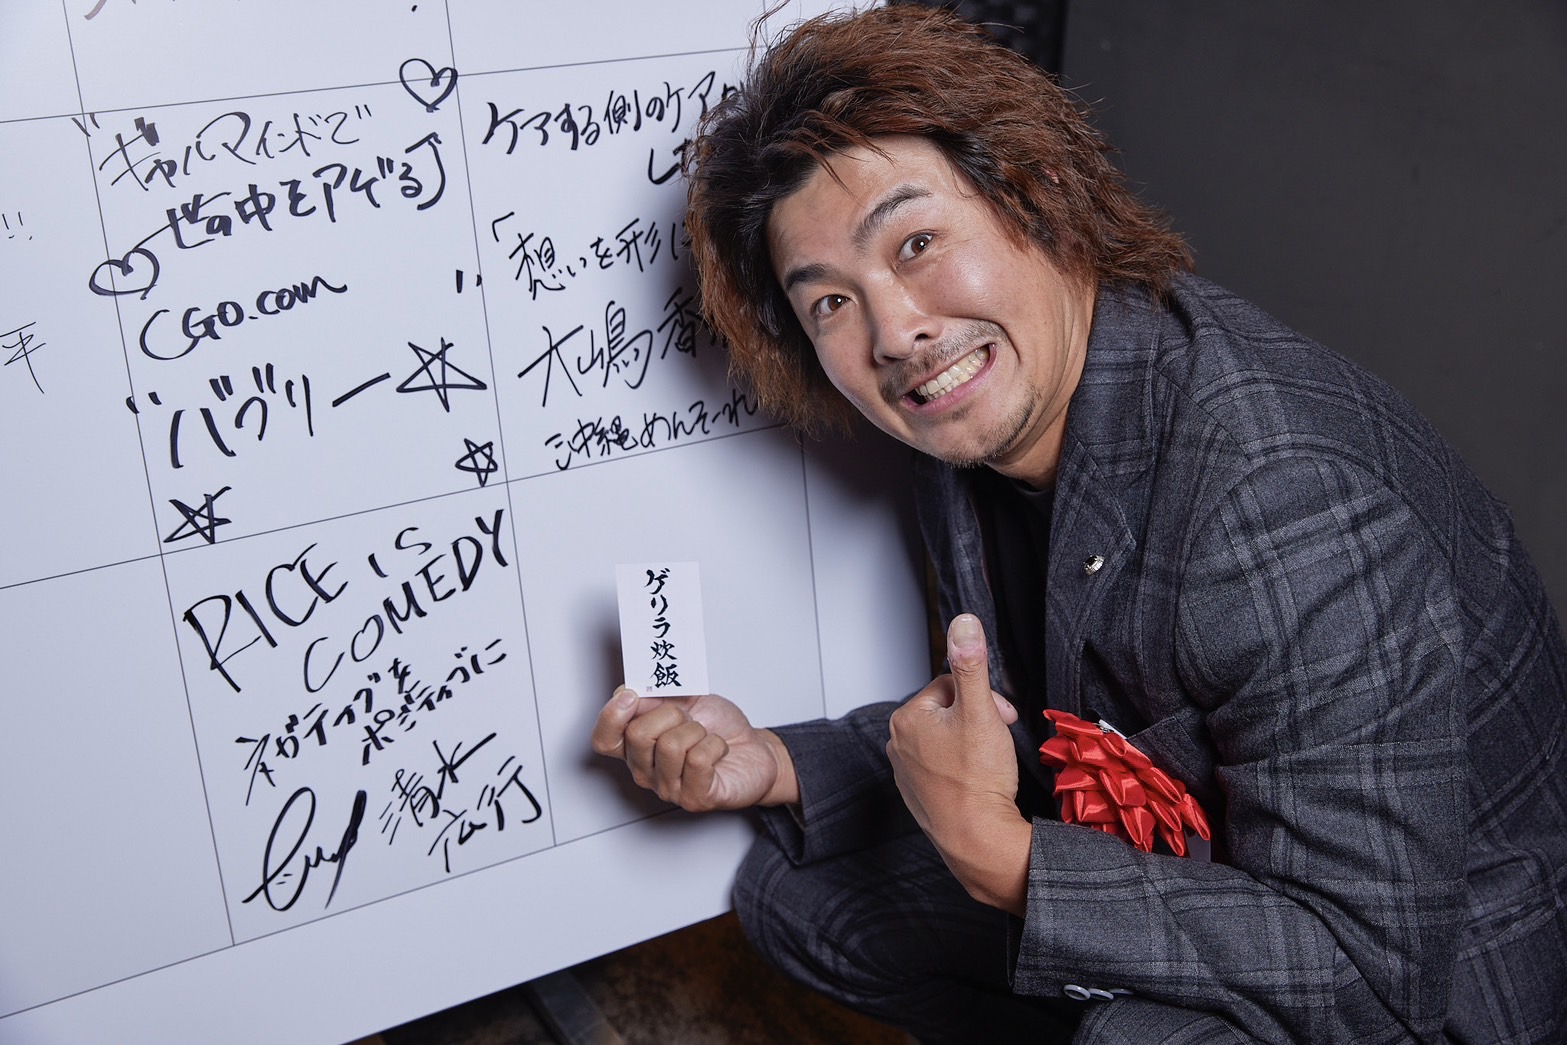 ギャルマインドで
世の中をアゲる
CGO.com
"バブリー"
ケアする側のケア
「想いを形に
大嶋香
沖縄めんそーれ
平
RICE IS
COMEDY
ネガティブを
ポジティブに
清水
広行
ゲリラ炊飯